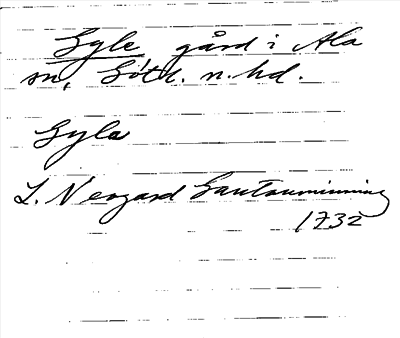 Gyle gård i Ala
sn, Gotl. n. hd.
Gyle
L. Neogard Gautauminning
1732